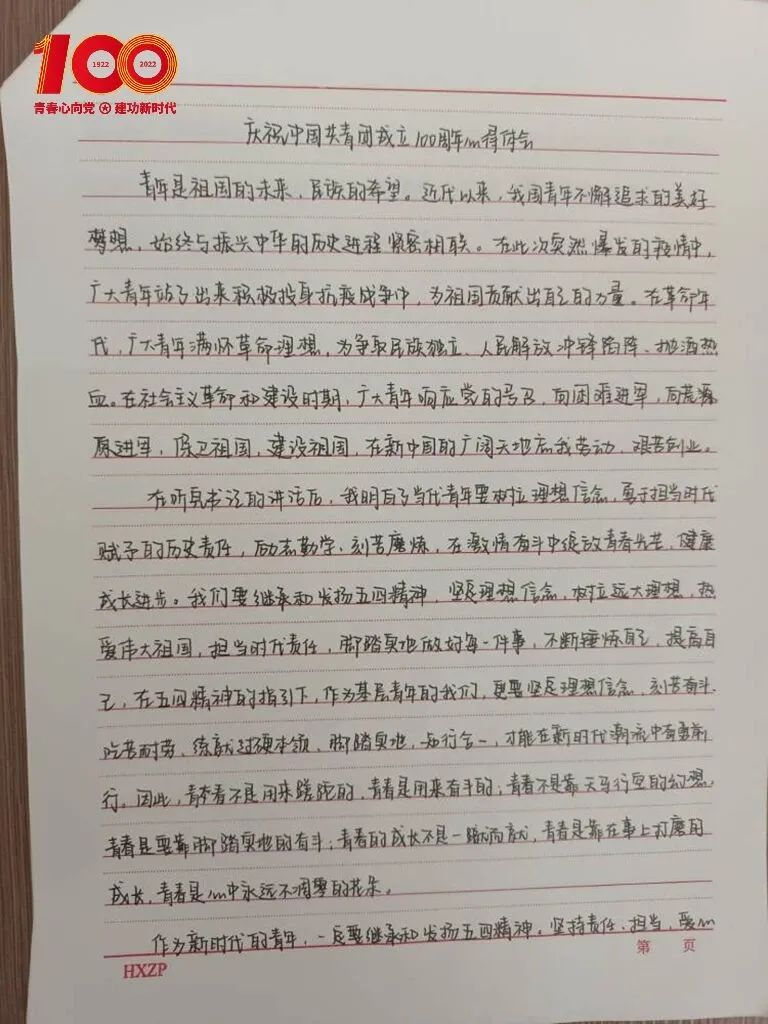 100
1922
2022
青春心向党 建功新时代
庆祝中国共青团成立100周年心得体会
青年是祖国的未来，民族的希望。近代以来，我国青年不懈追求的美好
梦想，始终与振兴中华的历史进程紧密相联。在此次突然爆发的疫情中，
广大青年站了出来积极投身抗疫战争中，为祖国贡献出自己的力量。在革命年
代，广大青年满怀革命理想，为争取民族独立、人民解放冲锋陷阵、抛洒热
血。在社会主义革命和建设时期，广大青年响应党的号召，向困难进军，向荒源
原进军，保卫祖国，建设祖国，在新中国的广阔天地忘我劳动，艰苦创业。
在听完书记的讲话后，我明白了当代青年要树立理想信念，勇于担当时代
赋予的历史责任，励志勤学、刻苦磨炼，在激情奋斗中绽放青春光芒，健康
成长进步。我们要继承和发扬五四精神，坚定理想信念，树立远大理想，热
爱伟大祖国，担当时代责任，脚踏实地做好每一件事，不断锤炼自己，提高自
己，在五四精神的指引下，作为基层青年的我们，更要坚定理想信念，刻苦奋斗、
吃苦耐劳、练就过硬本领、脚踏实地，知行合一，才能在新时代潮流中奋勇前
行。因此，青春不是用来蹉跎的，青春是用来奋斗的；青春不是靠天马行空的幻想，
青春是要靠脚踏实地的奋斗；青春的成长不是一蹴而就，青春是靠在事上打磨的
成长，青春是心中永远不凋零的花朵。
作为新时代的青年，一定要继承和发扬五四精神。坚持责任、担当，爱心
第 页
HXZP